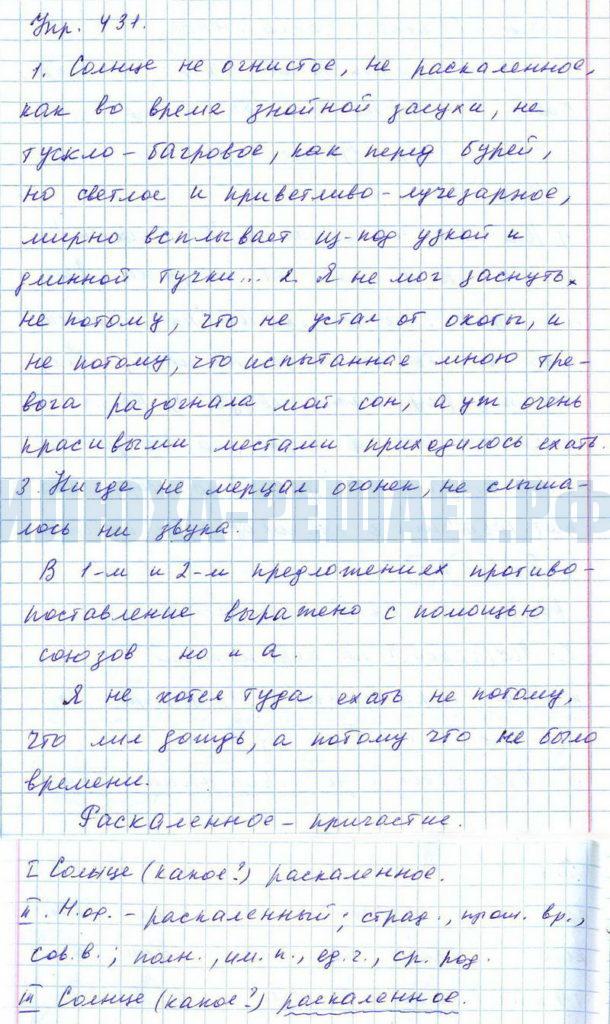 Упр. 431.
1. Солнце не огнистое, не раскаленное,
как во время знойной засухи, не
тускло-багровое, как перед бурей,
но светлое и приветливо-лучезарное,
мирно всплывает из-под узкой и
длинной тучки... 2. Я не мог заснуть
не потому, что не устал от охоты, и
не потому, что испытанная мною тре-
вога разогнала мой сон, а уж очень
красивыми местами приходилось ехать.
3. Нигде не мерцал огонек, не слыша-
лось ни звука.
ИЛЮХА-РЕШАЕТ.РФ
В 1-м и 2-м предложениях противо-
поставление выражено с помощью
союзов но и а.
Я не хотел туда ехать не потому,
что лил дождь, а потому что не было
времени.
Раскаленное – причастие.
I Солнце (какое?) раскаленное.
II. Н.ф. – раскаленный; страд., прош. вр.,
сов.в.; полн., им.п., ед.ч., ср. род.
III Солнце (какое?) раскаленное.